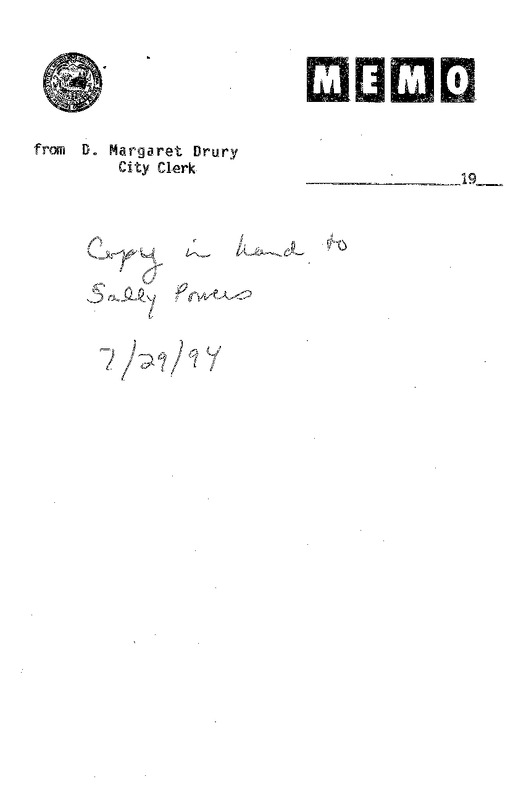 MEMO
from D. Margaret Drury
City Clerk
19
Copy in hand to
Sally Powers
7/29/94